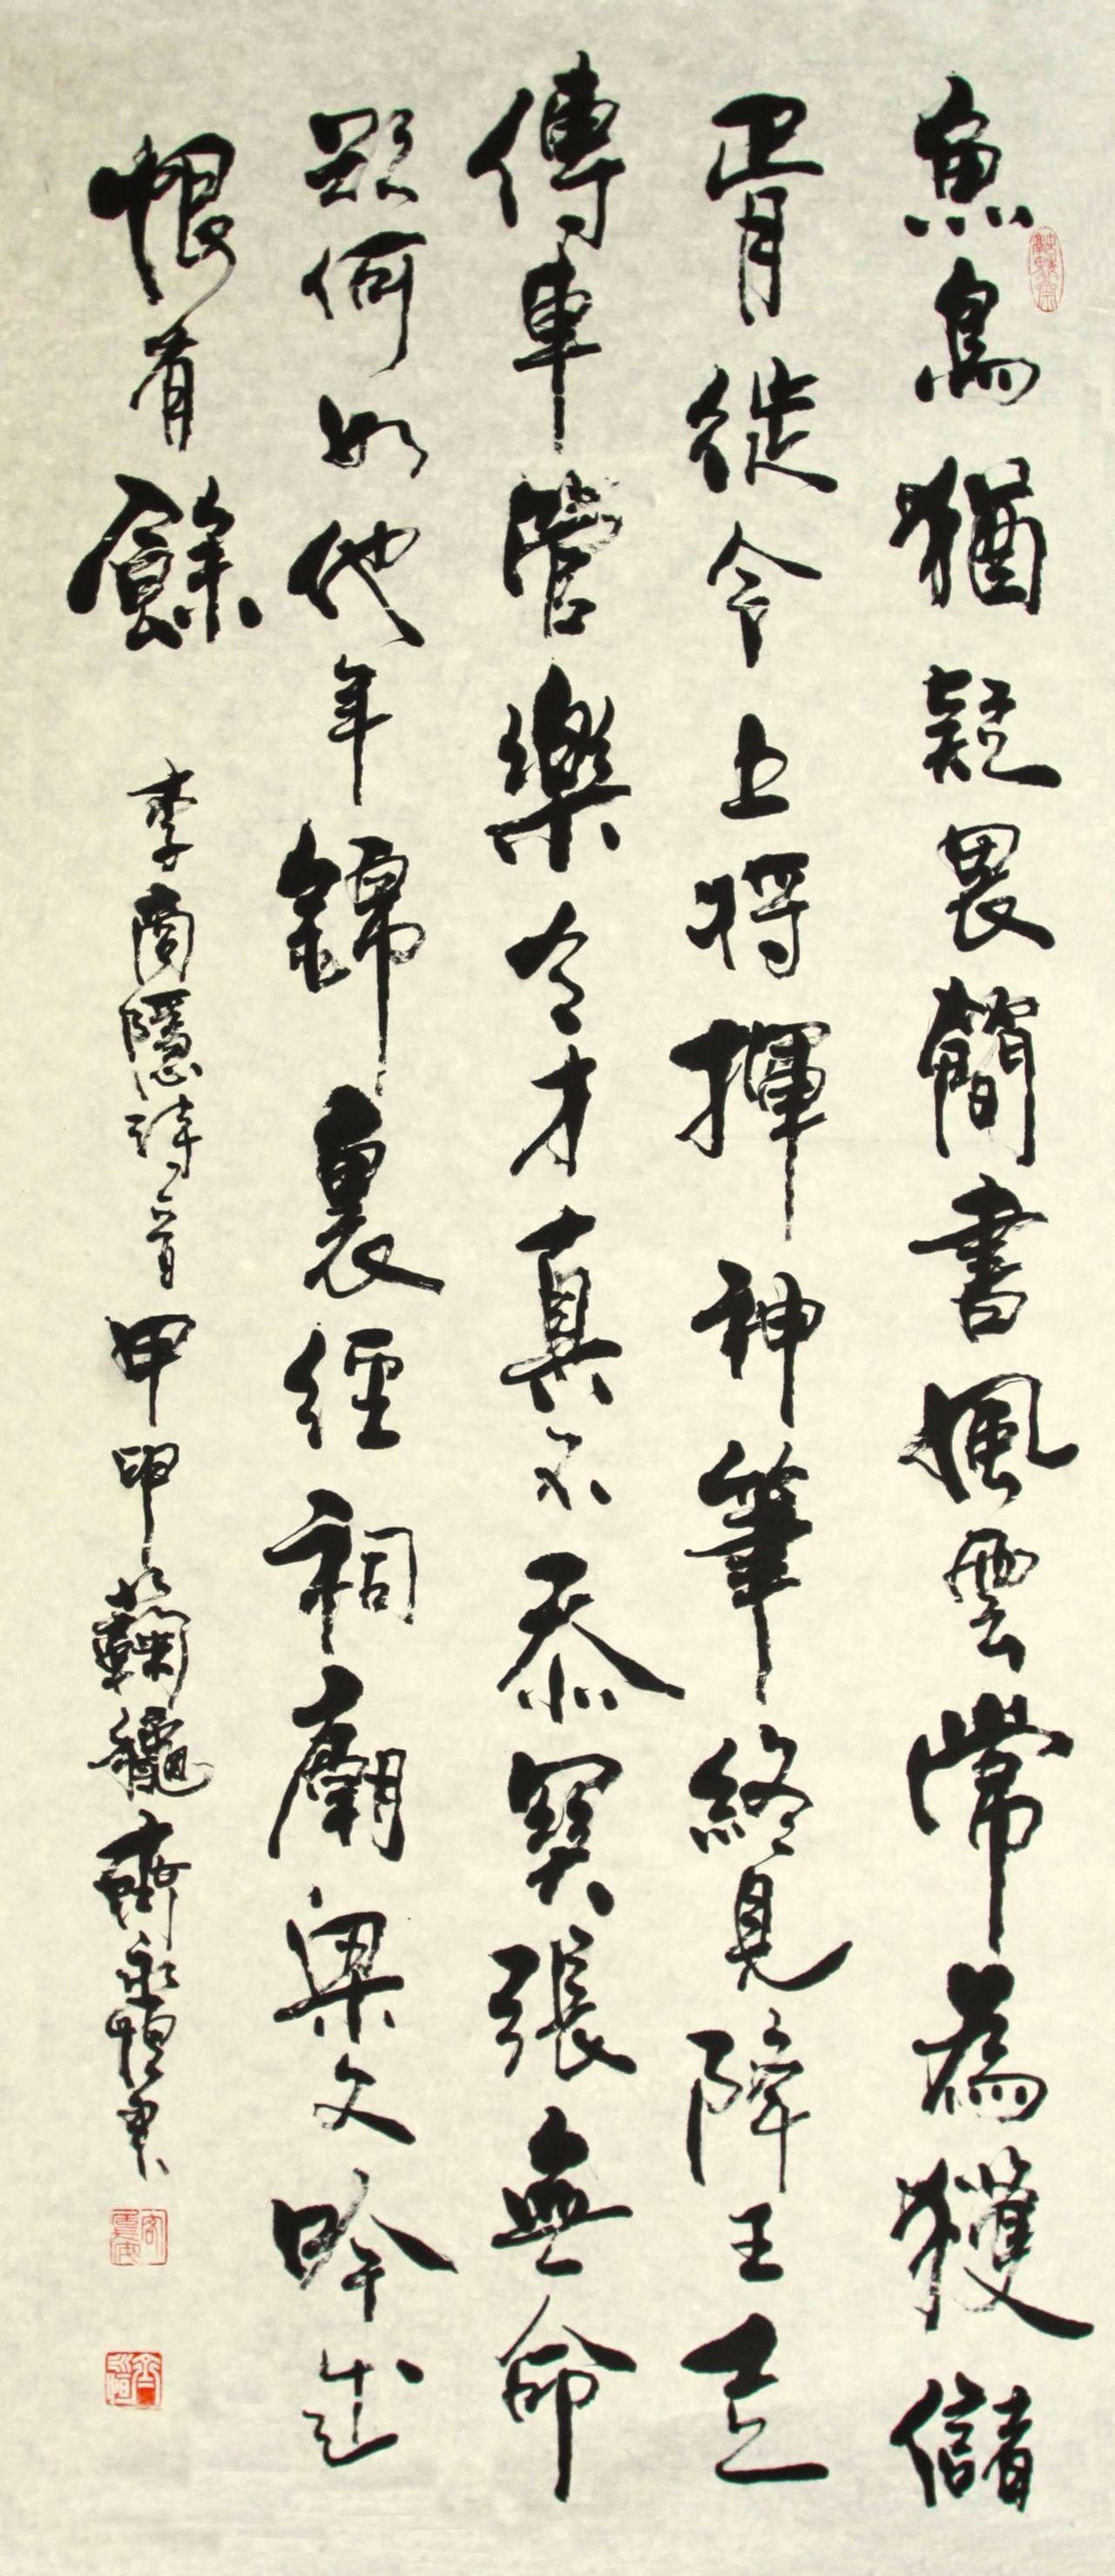 魚鳥猶疑畏簡書風雲常為獲儲
胥徒令上將揮神筆終見降王走
傳車管樂令才真不忝関張無命
欲何如他年錦裏經祠廟梁文吟成
恨有餘 李商隱詩一首 甲申菊龝齊永恒書